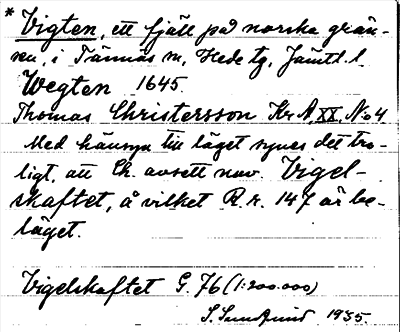 * Vigten, ett fjäll på norska grän-
sen, i Tännäs sn, Hede tg, Jämtl. l.
Wegten 1645.
Thomas Christersson Kr. A. XX. No 4
Med hänsyn till läget synes det tro-
ligt, att Ch. avsett nuv. Vigel-
skaftet, å vilket R. r. 147 är be-
läget.
Vigelskaftet G. 76 (1:200.000)
1935.